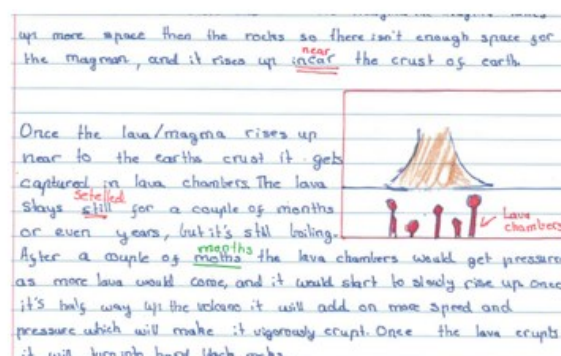 up more space then the rocks so there isn't enough space for
near
the magman, and it rises up incar the crust of earth.
Once the lava/magma rises up
near to the earths crust it gets
captured in lava chambers. The lava
setelled
stays still for a couple of months
or even years, but it's still boiling.
Lava
chambers
months
After a couple of moths the lava chambers would get pressure
as more lava would come, and it would start to slowly rise up once
it's half way up the volcano it will add on more speed and
pressure which will make it vigorously erupt. Once the lava erupts
it will turn into hard black rocks.